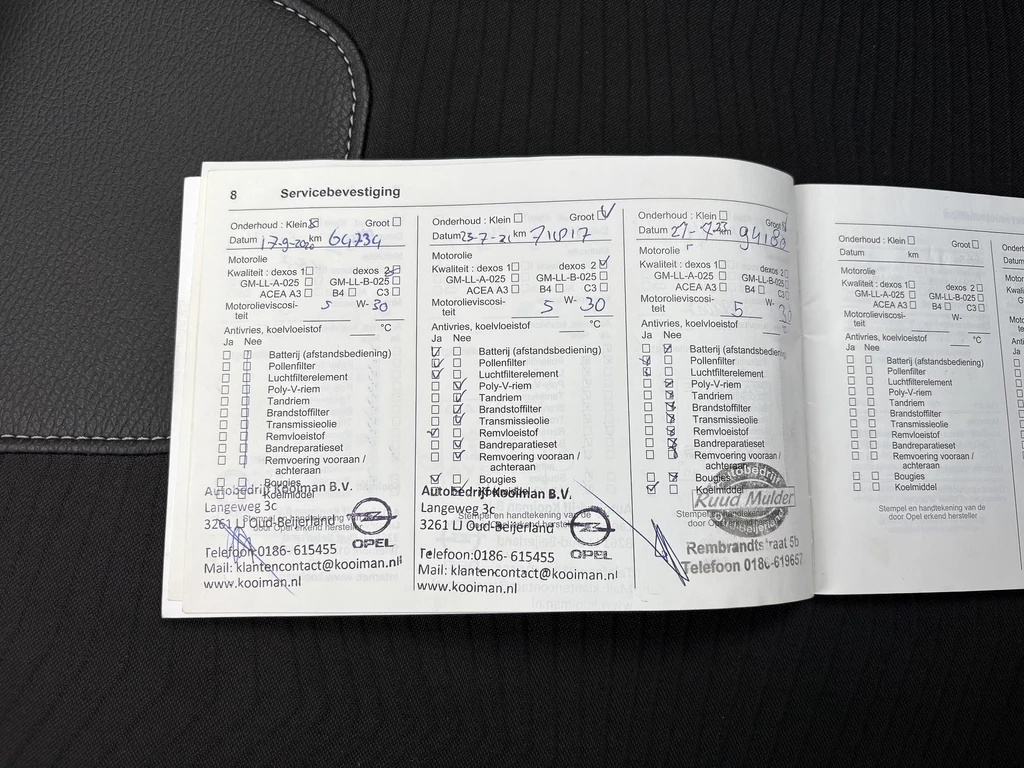 8 Servicebevestiging
Onderhoud : Klein Groot
Datum 17-9-2020 km 64734
Motorolie
Kwaliteit : dexos 1 dexos 2
GM-LL-A-025 GM-LL-B-025
ACEA A3 B4 C3
Motorolieviscosi- 5 W- 30
teit
Antivries, koelvloeistof °C
Ja Nee
Batterij (afstandsbediening)
Pollenfilter
Luchtfilterelement
Poly-V-riem
Tandriem
Brandstoffilter
Transmissieolie
Remvloeistof
Bandreparatieset
Remvoering vooraan /
achteraan
Bougies
Koelmiddel
Autobedrijf Kooiman B.V.
Langeweg 3c
3261 LJ Oud-Beijerland
OPEL
Telefoon:0186- 615455
Mail: klantencontact@kooiman.nl
www.kooiman.nl
Onderhoud : Klein Groot
Datum 23-7-21 km 71017
Motorolie
Kwaliteit : dexos 1 dexos 2
GM-LL-A-025 GM-LL-B-025
ACEA A3 B4 C3
Motorolieviscosi- 5 W- 30
teit
Antivries, koelvloeistof °C
Ja Nee
Batterij (afstandsbediening)
Pollenfilter
Luchtfilterelement
Poly-V-riem
Tandriem
Brandstoffilter
Transmissieolie
Remvloeistof
Bandreparatieset
Remvoering vooraan /
achteraan
Bougies
Autobedrijf Kooiman B.V.
Langeweg 3c
Stempel en handtekening van de
3261 LJ Oud-Beijerland
OPEL
Telefoon:0186- 615455
Mail: klantencontact@kooiman.nl
www.kooiman.nl
Onderhoud : Klein Groot
Datum km
Motorolie
Kwaliteit : dexos 1 dexos 2
GM-LL-A-025 GM-LL-B-025
ACEA A3 B4 C3
Motorolieviscosi- 5 W- 30
teit
Antivries, koelvloeistof °C
Ja Nee
Batterij (afstandsbediening)
Pollenfilter
Luchtfilterelement
Poly-V-riem
Tandriem
Brandstoffilter
Transmissieolie
Remvloeistof
Bandreparatieset
Remvoering vooraan /
achteraan
Bougies
Koelmiddel
Autobedrijf
Ruud Mulder
Rembrandtstraat 5b
Telefoon 0186-619657
Onderhoud : Klein Groot
Datum km
Motorolie
Kwaliteit : dexos 1 dexos 2
GM-LL-A-025 GM-LL-B-025
ACEA A3 B4 C3
Motorolieviscosi- W-
teit
Antivries, koelvloeistof °C
Ja Nee
Batterij (afstandsbediening)
Pollenfilter
Luchtfilterelement
Poly-V-riem
Tandriem
Brandstoffilter
Transmissieolie
Remvloeistof
Bandreparatieset
Remvoering vooraan /
achteraan
Bougies
Koelmiddel
Stempel en handtekening van de
door Opel erkend hersteller